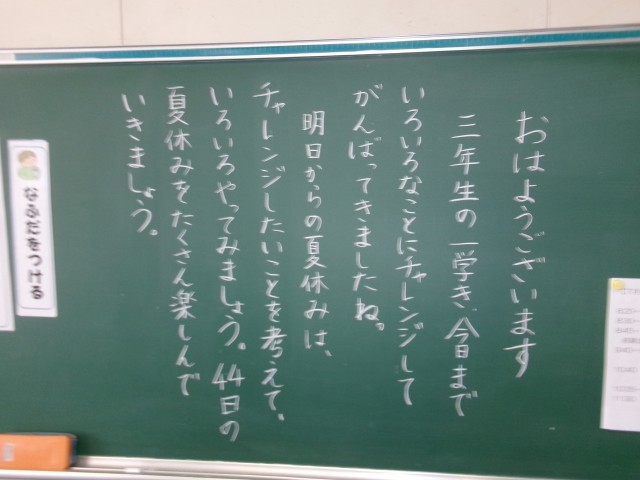 おはようございます
三年生の一学き、今日まで
いろいろなことにチャレンジして
がんばってきましたね。
明日からの夏休みは、
チャレンジしたいことを考えて、
いろいろやってみましょう。44日の
夏休みをたくさん楽しんで
いきましょう。
なふだをつける